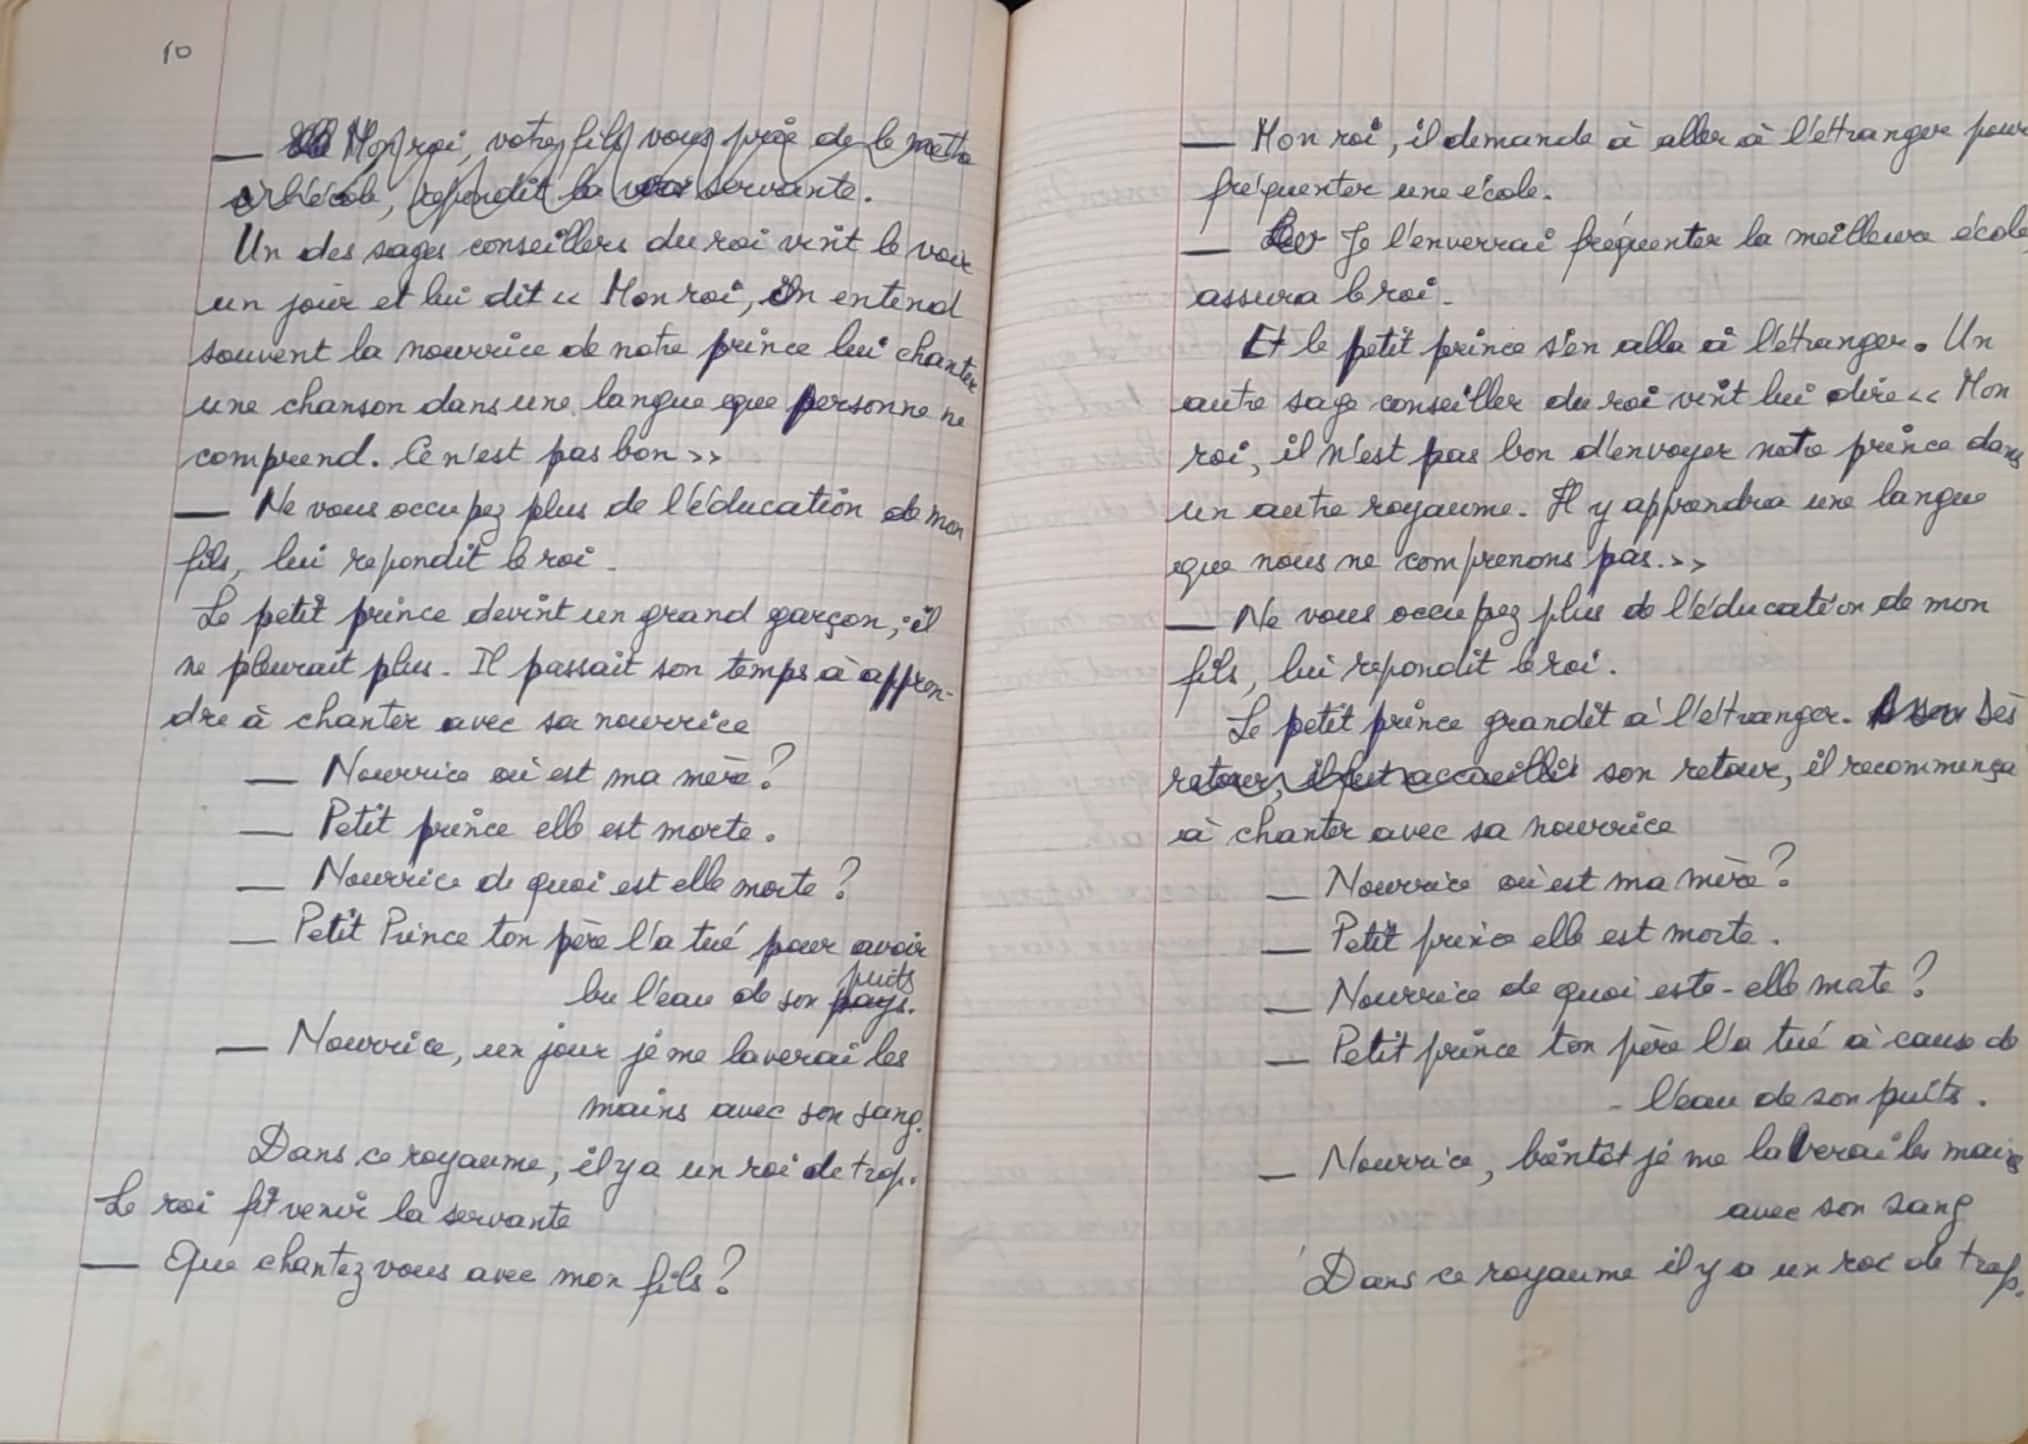 10
— Mon roi, votre fils vous prie de le mettre
à l'école, repondit la servante.
Un des sages conseillers du roi vint le voir
un jour et lui dit << Mon roi, on entend
souvent la nourrice de notre prince lui chanter
une chanson dans une langue que personne ne
comprend. Ce n'est pas bon >>
— Ne vous occupez plus de l'éducation de mon
fils, lui repondit le roi.
Le petit prince devint un grand garçon, il
ne pleurait plus. Il passait son temps à appren-
dre à chanter avec sa nourrice
— Nourrice où est ma mère?
— Petit prince elle est morte.
— Nourrice de quoi est elle morte?
— Petit Prince ton père l'a tué pour avoir
bu l'eau de son pays. puits
— Nourrice, un jour je me laverai les
mains avec son sang.
Dans ce royaume, il y a un roi de trop.
Le roi fit venir la servante
— Que chantez vous avec mon fils?
— Mon roi, il demande à aller à l'étranger pour
fréquenter une école.
— Je l'enverrai fréquenter la meilleure école
assura le roi.
Et le petit prince s'en alla à l'étranger. Un
autre sage conseiller du roi vint lui dire << Mon
roi, il n'est pas bon d'envoyer notre prince dans
un autre royaume. Il y apprendra une langue
que nous ne comprenons pas. >>
— Ne vous occupez plus de l'éducation de mon
fils, lui repondit le roi.
Le petit prince grandit à l'étranger. A son Dès
retour, il fut accueilli son retour, il recommença
à chanter avec sa nourrice
— Nourrice où est ma mère?
— Petit prince elle est morte.
— Nourrice de quoi este-elle morte?
— Petit prince ton père l'a tué à cause de
l'eau de son puits.
— Nourrice, bientôt je me laverai les mains
avec son sang
Dans ce royaume il y a un roi de trop.